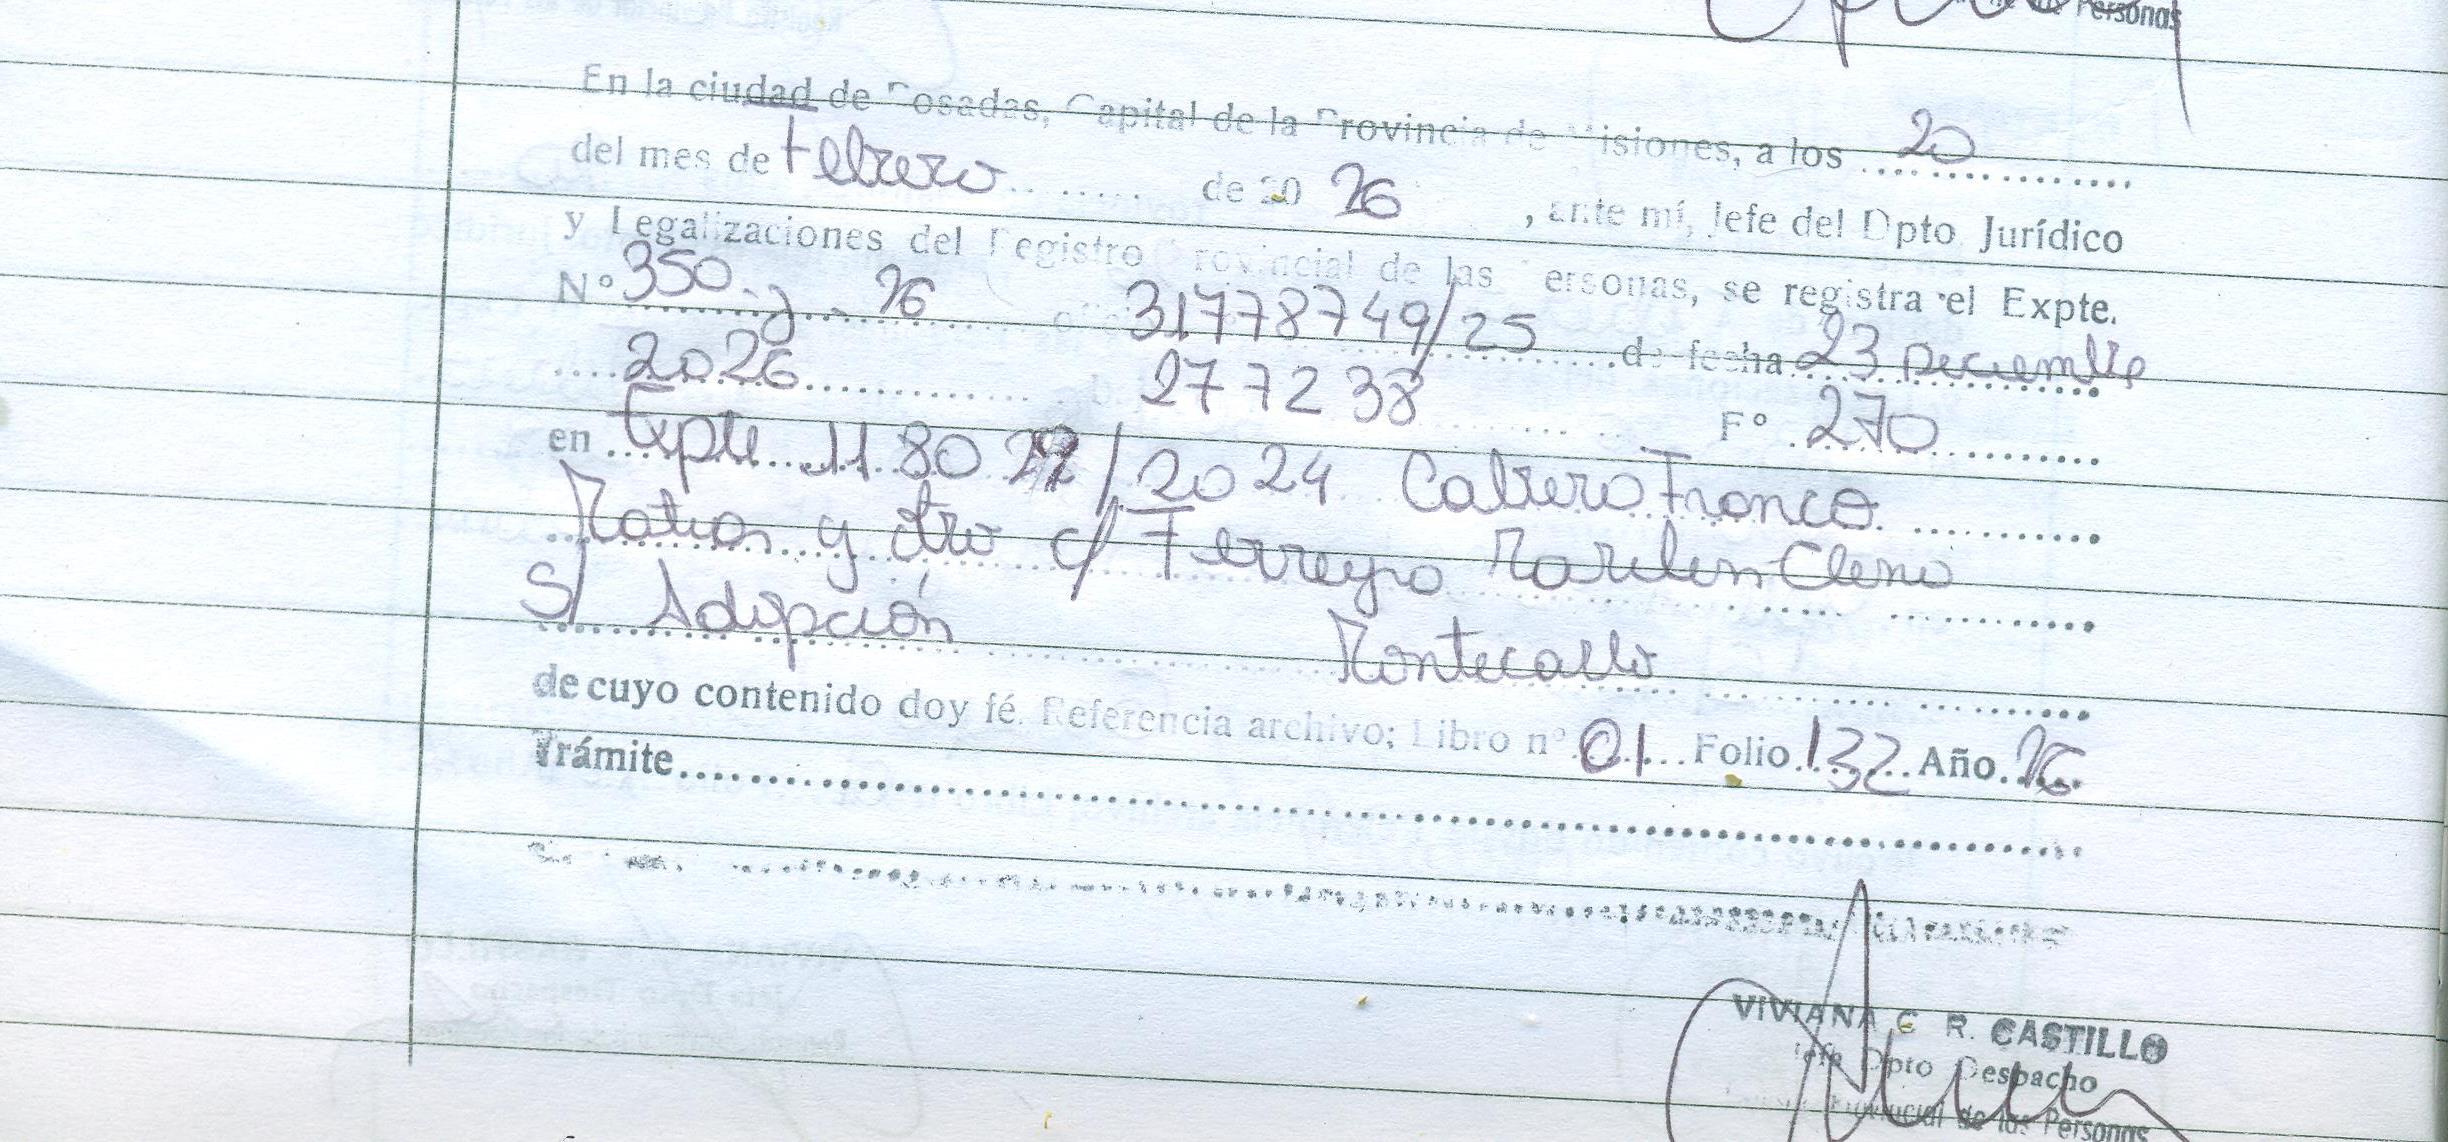 Personas
En la ciudad de Posadas, Capital de la Provincia de Misiones, a los 20
del mes de Febrero de 20 26 , ante mí, Jefe del Dpto Jurídico
y Legalizaciones del Registro Provincial de las Personas, se registra el Expte.
Nº 350 - J - 26 31778749/25 de fecha 23 Deciembre
2026 277238 Fº 270
en Expte 11 80 /2024 Cabrero Franco
Matias y otro c/ Ferreyra Marilen Elena
S/ Adopción Montecarlo
de cuyo contenido doy fé. Referencia archivo; Libro nº 01 Folio 132 Año 26
Trámite
VIVIANA C R. CASTILLO
Jefe Dpto Despacho
Provincial de las Personas